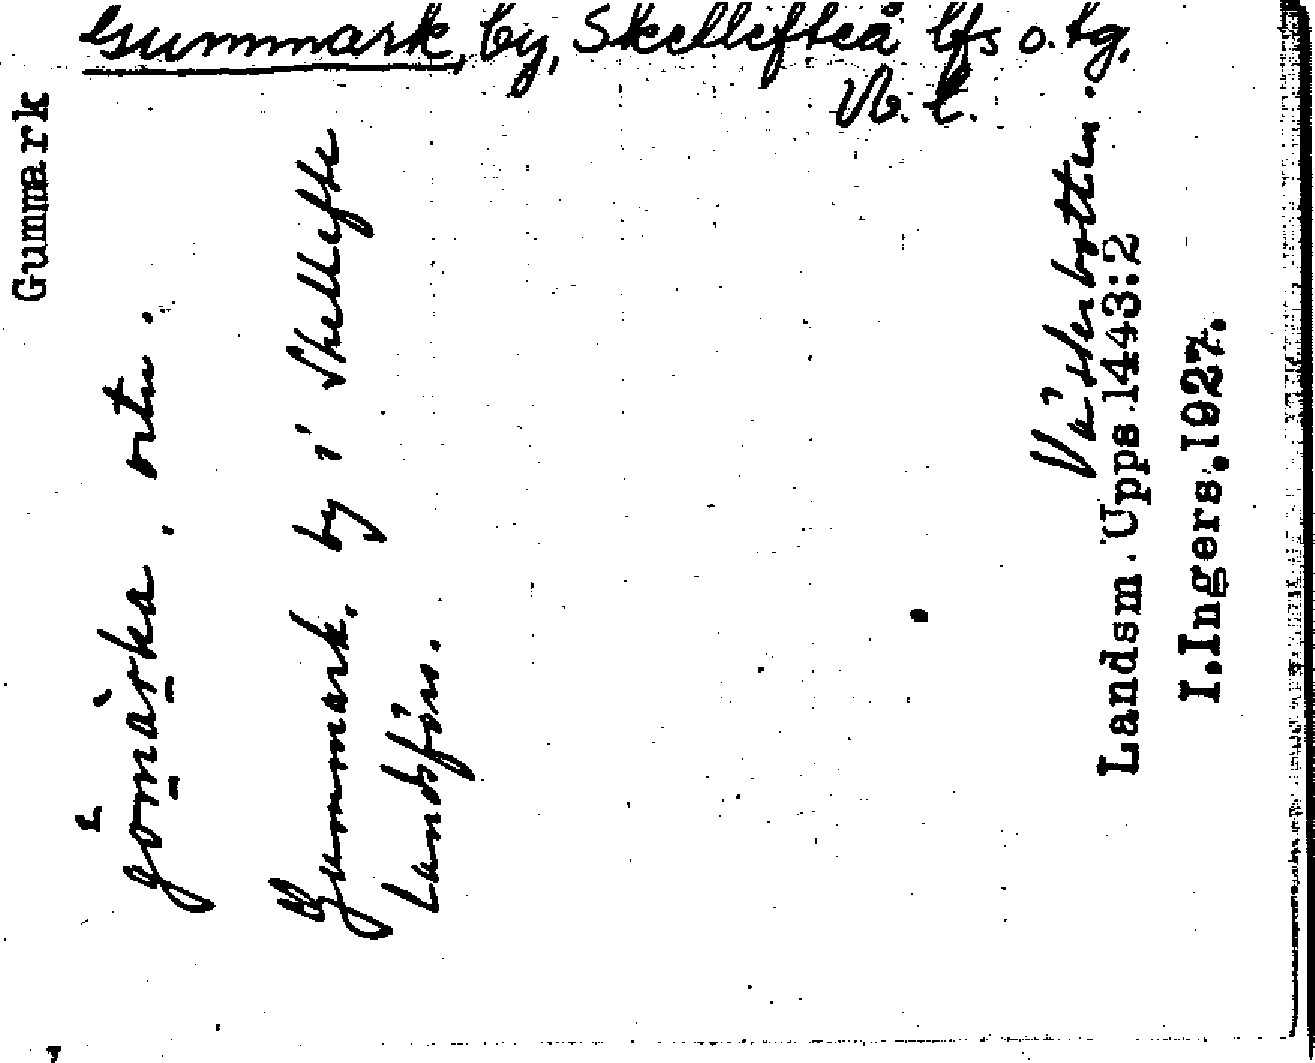 Gummark, by, Skellefteå lfs o. tg,
Vb. l.
Gummark
gomarka. ortn.
Gummark, by i Skellefte
Landsförs.
Västerbotten.
Landsm. Upps. 1443:2
I. Ingers. 1927.